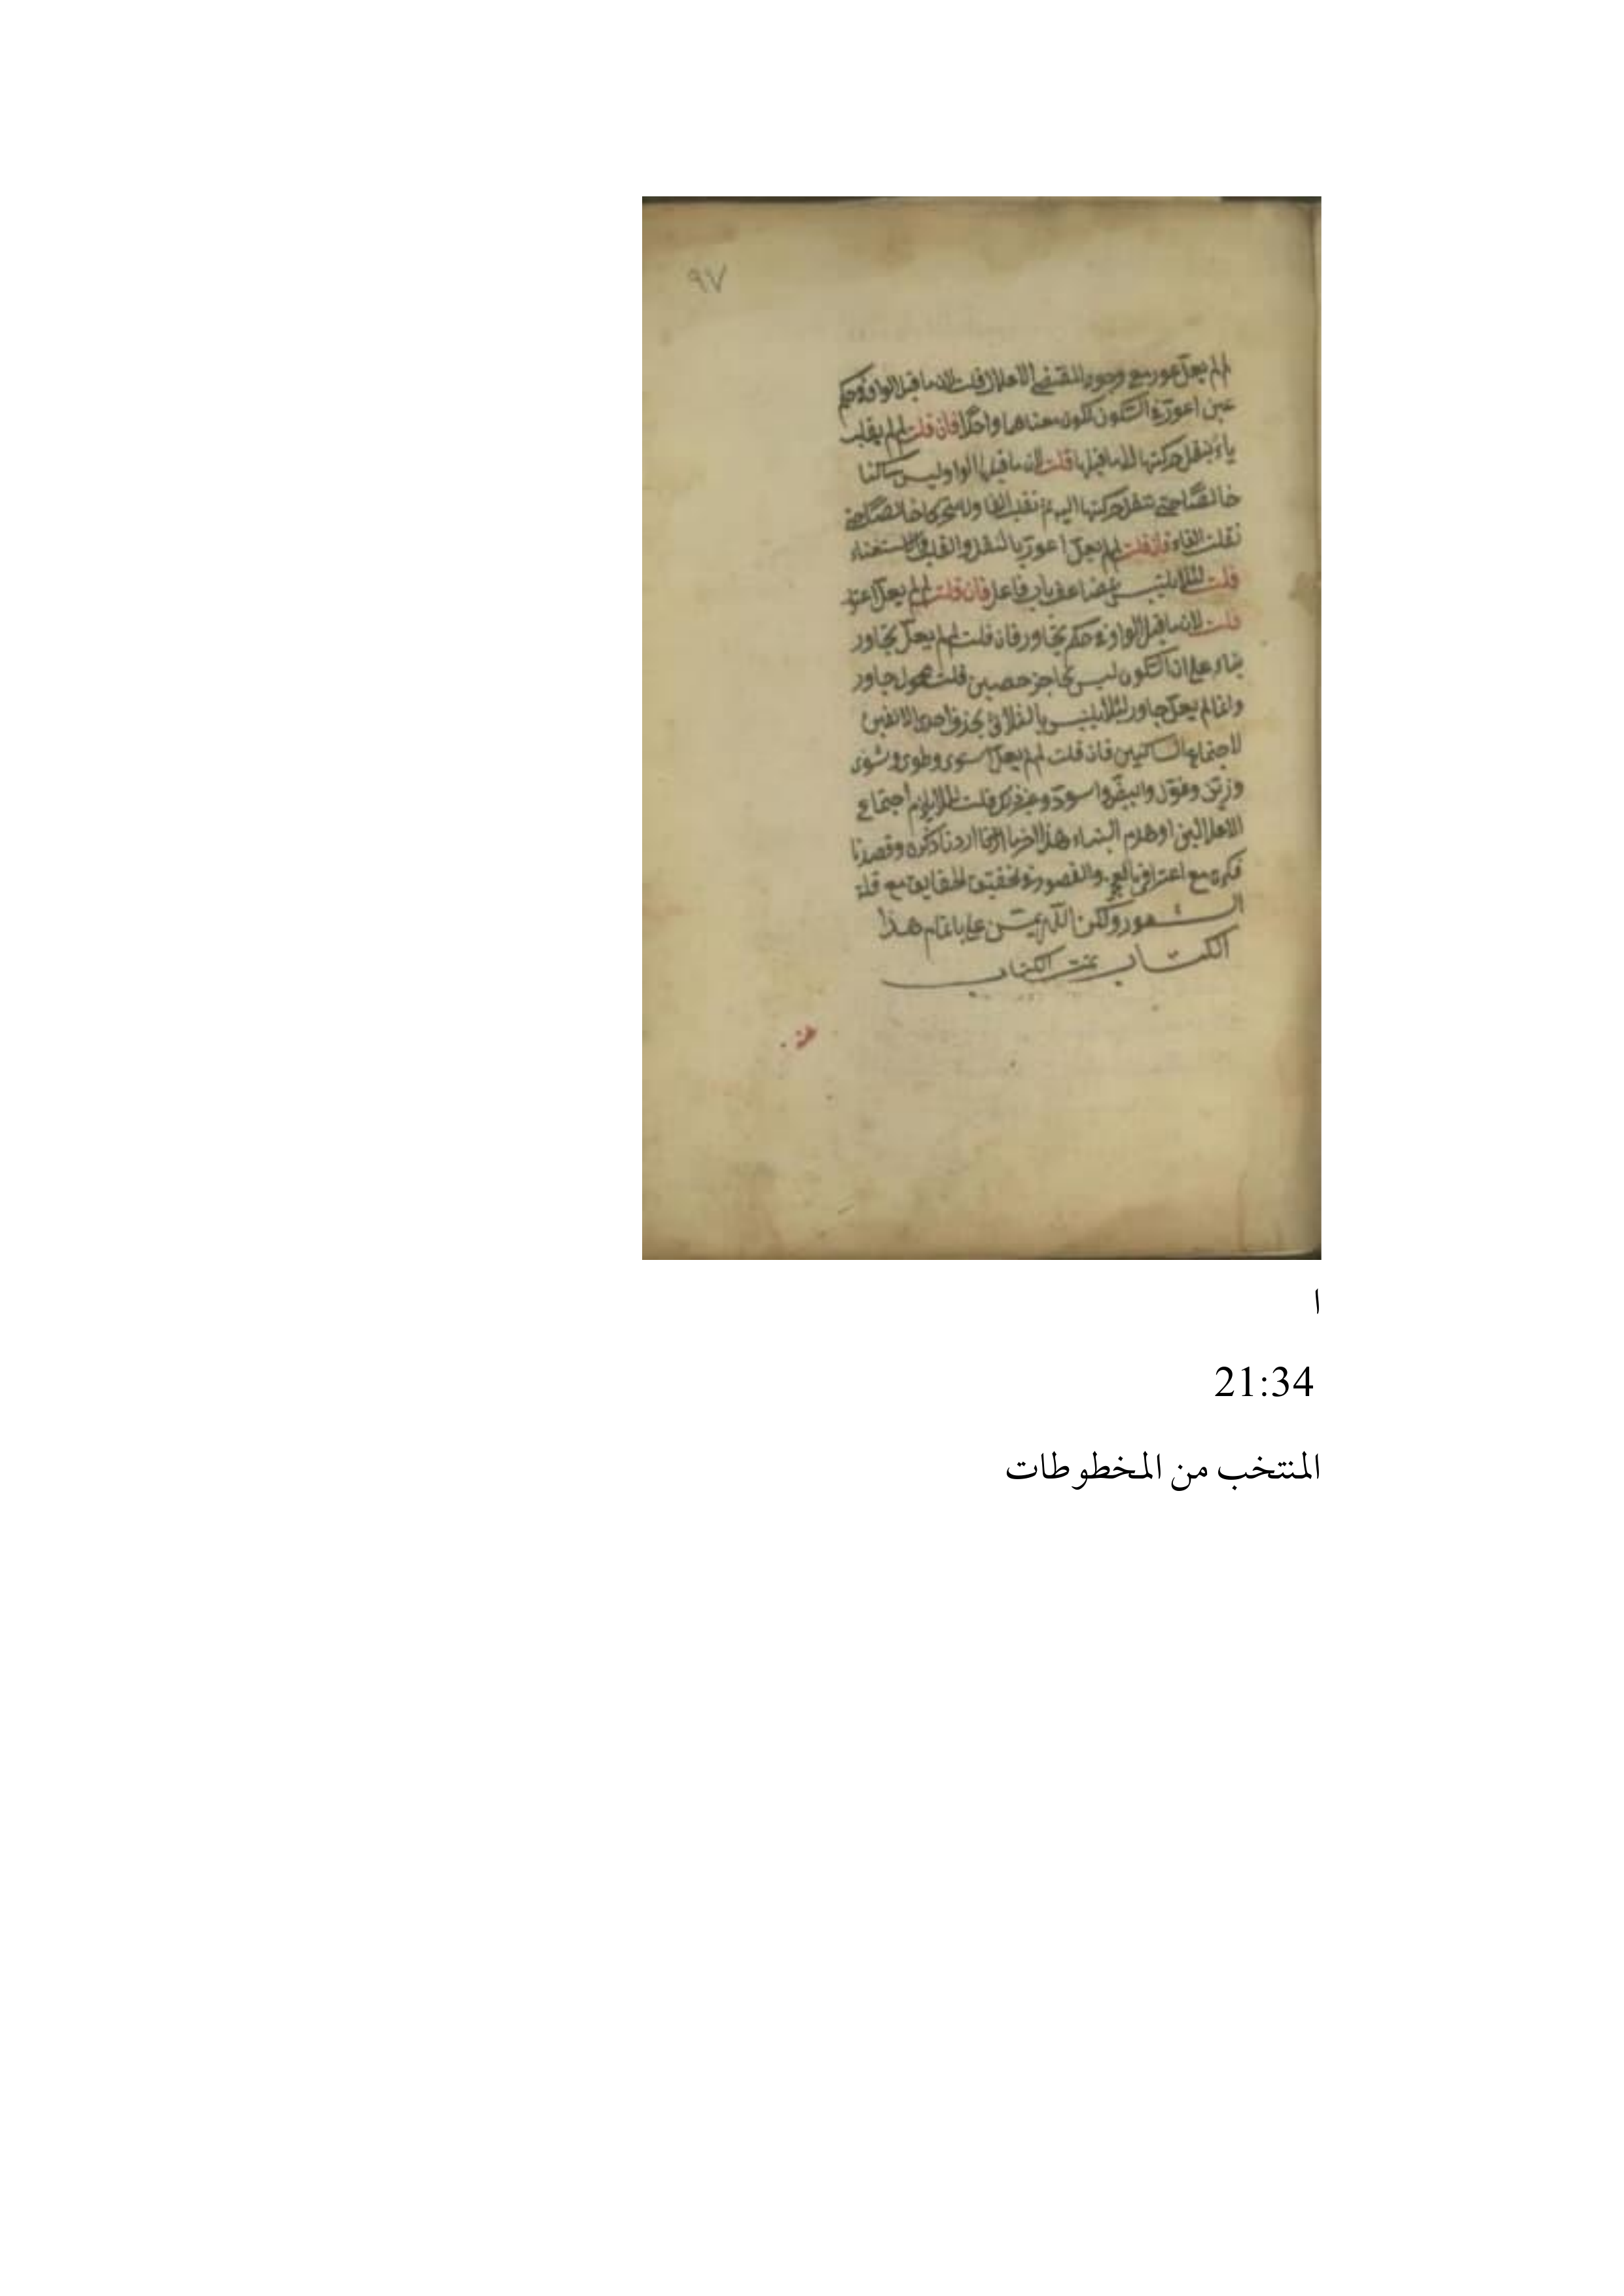 ٩٧
لم لم يعل عور مع وجود المقتضى الاعلال قلت لان ما قبل الواو في حكم
عين اعور في السكون لكون معناهما واحدا فان قلت لم لم يقلب
ياء بنقل حركتها الى ما قبلها قلت لان ما قبل الواو ليس ساكنا
خالصا حتى تنقل حركتها اليه ثم تقلب الفا ولا متحركا خالصا حتى
نقلت الفاء فان قلت لم لم يعل اعور بالنقل والقلب
قلت لئلا يلتبس بمضاعف باب فاعل فان قلت لم لم يعل
قلت لان ما قبل الواو في حكم تجاور فان قلت لم لم يعل تجاور
بناء على ان السكون ليس بحاجز حصين قلت جاور
وانما لم يعل جاور لئلا يلتبس بالثلاثي بحذف احدى الالفين
لاجتماع الساكنين فان قلت لم لم يعل سوى وطوى وشوى
وزين وقول وابيض واسود وغير ذلك قلت لئلا يلزم اجتماع
الاعلالين او هدم البناء هذا اخر ما اردنا ذكره وقصدنا
فكره مع اعترافي بالعجز والقصور في تحقيق الحقايق مع قلة
الشعور ولكن الله يمن علي باتمام هذا
الكتاب تمت الكتاب
ا
21:34
المنتخب من المخطوطات